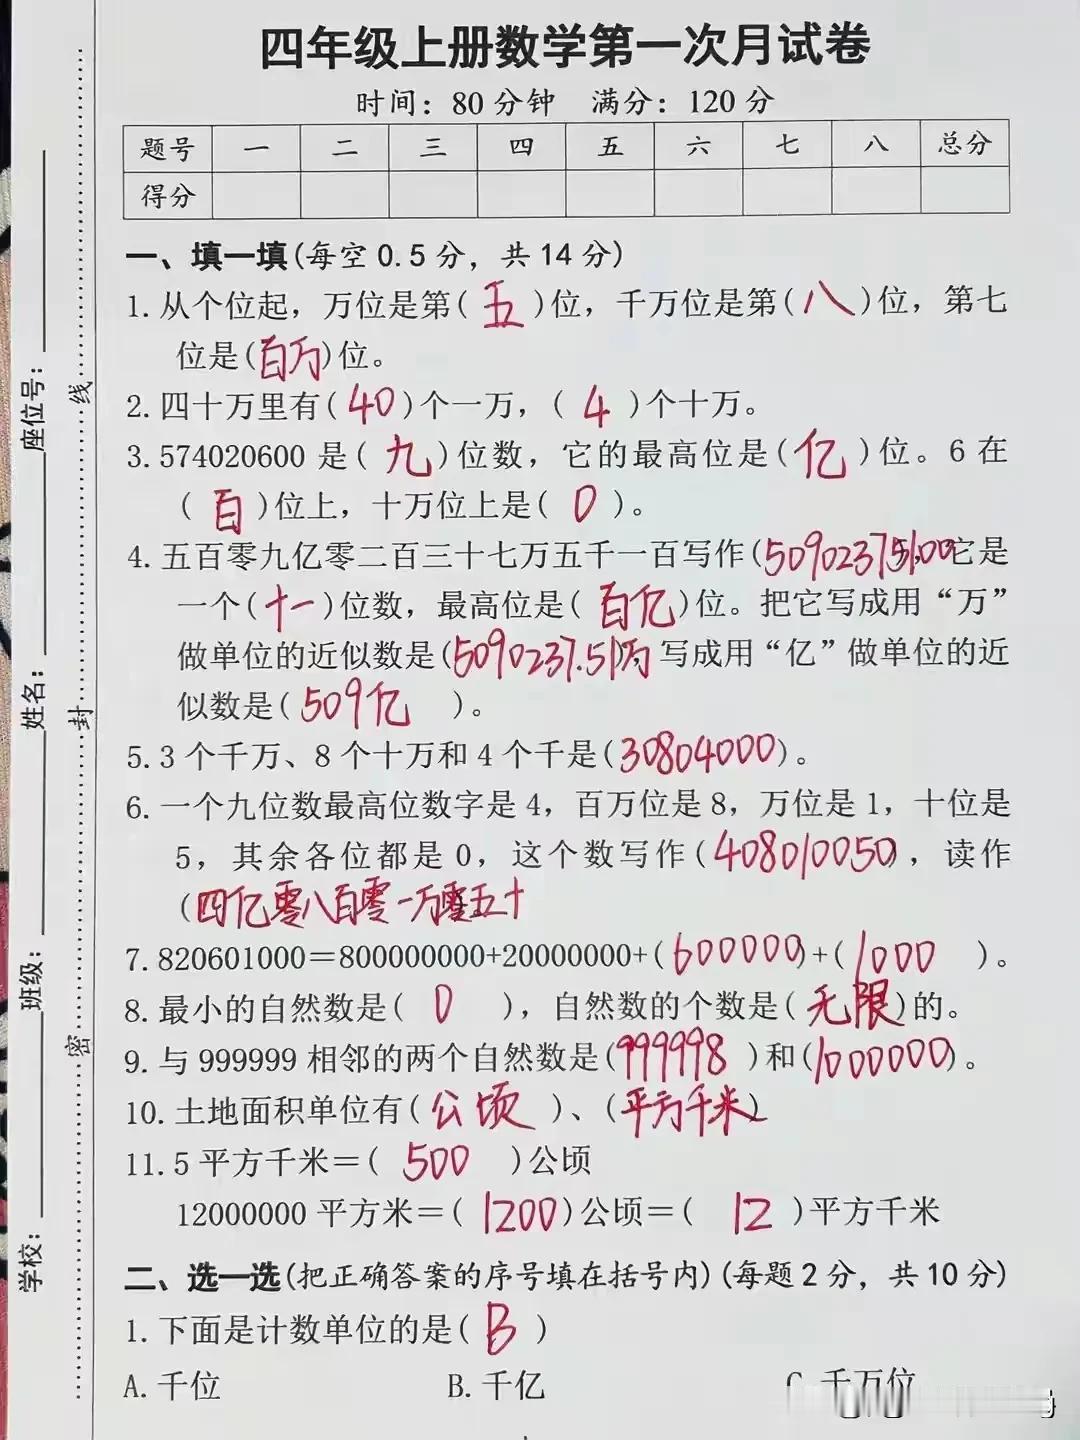 四年级上册数学第一次月试卷
时间：80分钟 满分：120分
题号 一 二 三 四 五 六 七 八 总分
得分
一、填一填(每空0.5分，共14分)
1.从个位起，万位是第(五)位，千万位是第(八)位，第七
位是(百万)位。
2.四十万里有(40)个一万，(4)个十万。
3.574020600是(九)位数，它的最高位是(亿)位。6在
(百)位上，十万位上是(0)。
4.五百零九亿零二百三十七万五千一百写作(50902375100)，它是
一个(十一)位数，最高位是(百亿)位。把它写成用“万”
做单位的近似数是(5090237.51万)，写成用“亿”做单位的近
似数是(509亿)。
5.3个千万、8个十万和4个千是(30804000)。
6.一个九位数最高位数字是4，百万位是8，万位是1，十位是
5，其余各位都是0，这个数写作(408010050)，读作
(四亿零八百零一万零五十
7.820601000=800000000+20000000+(600000)+(1000)。
8.最小的自然数是(0)，自然数的个数是(无限)的。
9.与999999相邻的两个自然数是(999998)和(1000000)。
10.土地面积单位有(公顷)、(平方千米)
11.5平方千米=(500)公顷
12000000平方米=(1200)公顷=(12)平方千米
二、选一选(把正确答案的序号填在括号内)(每题2分，共10分)
1.下面是计数单位的是(B)
A.千位 B.千亿 C.千万位
学校： 班级： 姓名： 座位号：
密 封 线